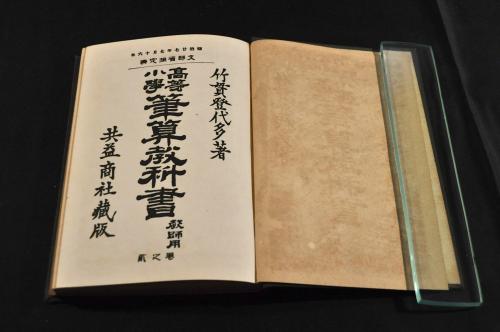 明治廿七年七月十六日
文部省檢定濟
竹貫登代多著
高等
小學
筆算教科書
教師用
卷之貳
共益商社藏版